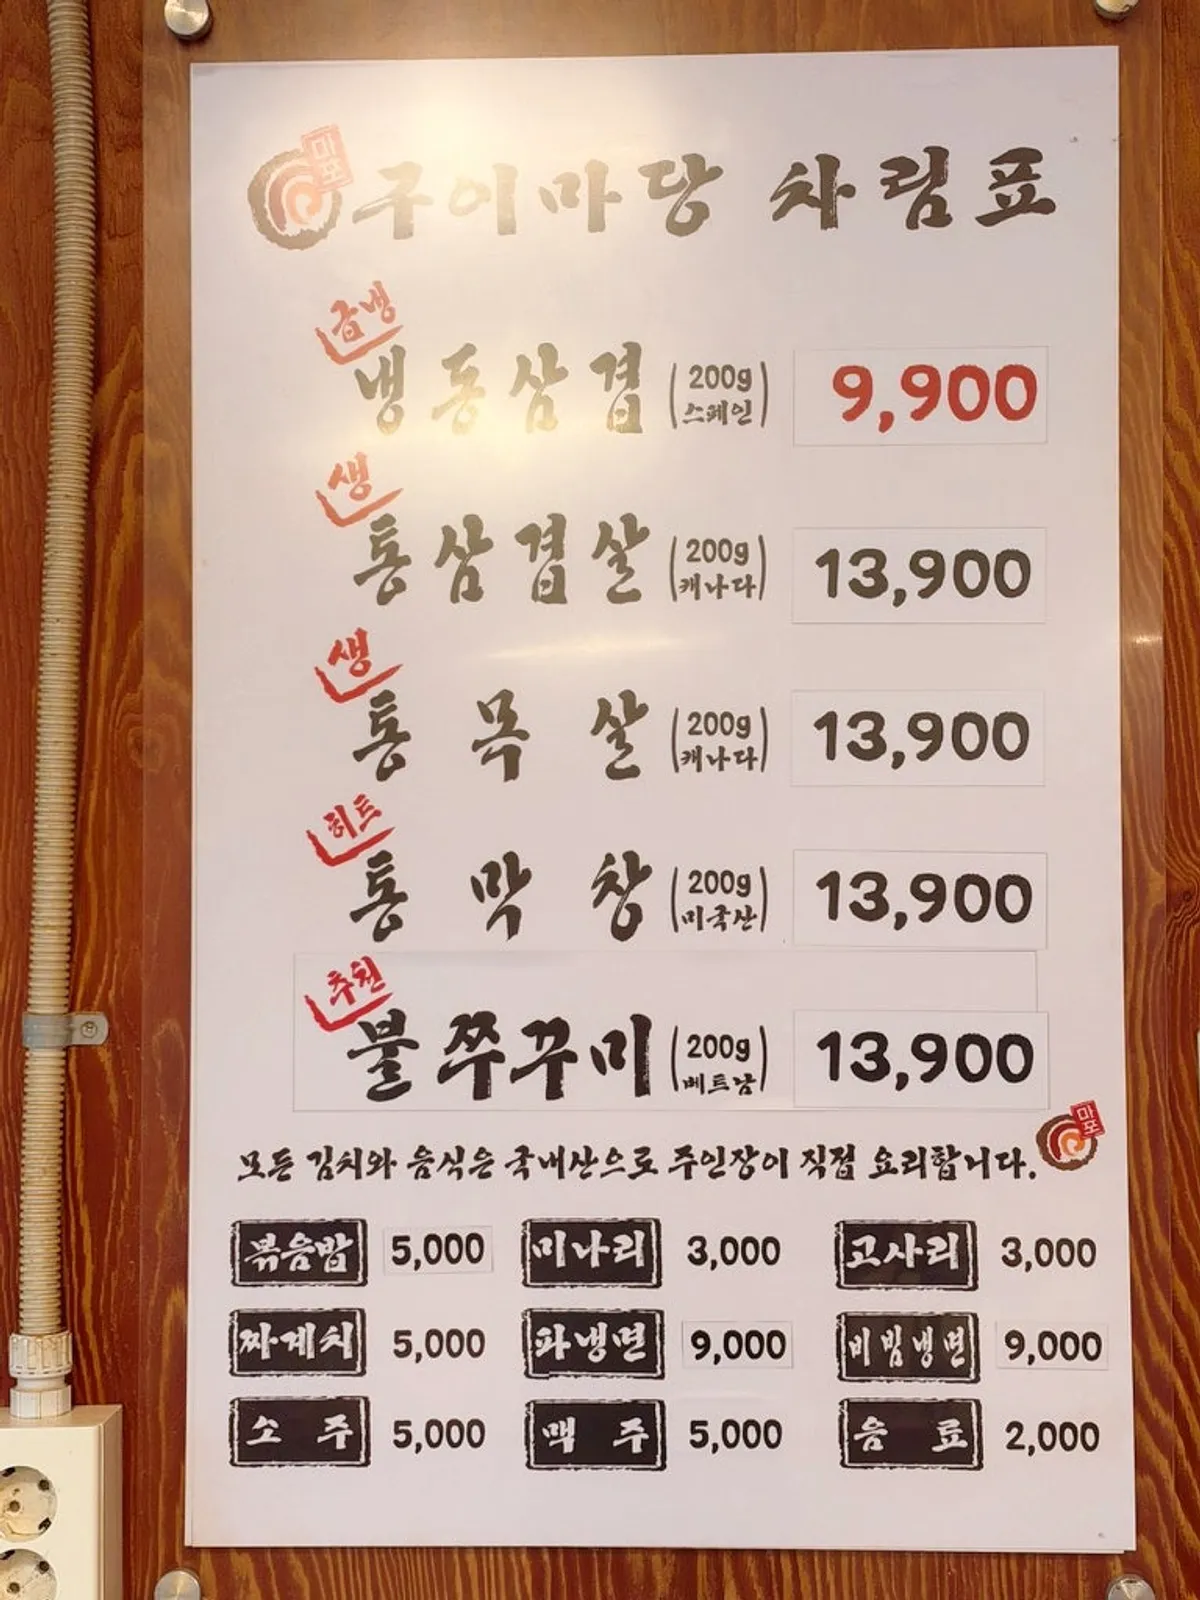 마포 구이마당 차림표
급냉
냉동삼겹 (200g 스페인) 9,900
생
통삼겹살 (200g 캐나다) 13,900
생
통목살 (200g 캐나다) 13,900
히트
통막창 (200g 미국산) 13,900
추천
불쭈꾸미 (200g 베트남) 13,900
모든 김치와 음식은 국내산으로 주인장이 직접 요리합니다. 마포
볶음밥 5,000 미나리 3,000 고사리 3,000
짜계치 5,000 파냉면 9,000 비빔냉면 9,000
소주 5,000 맥주 5,000 음료 2,000